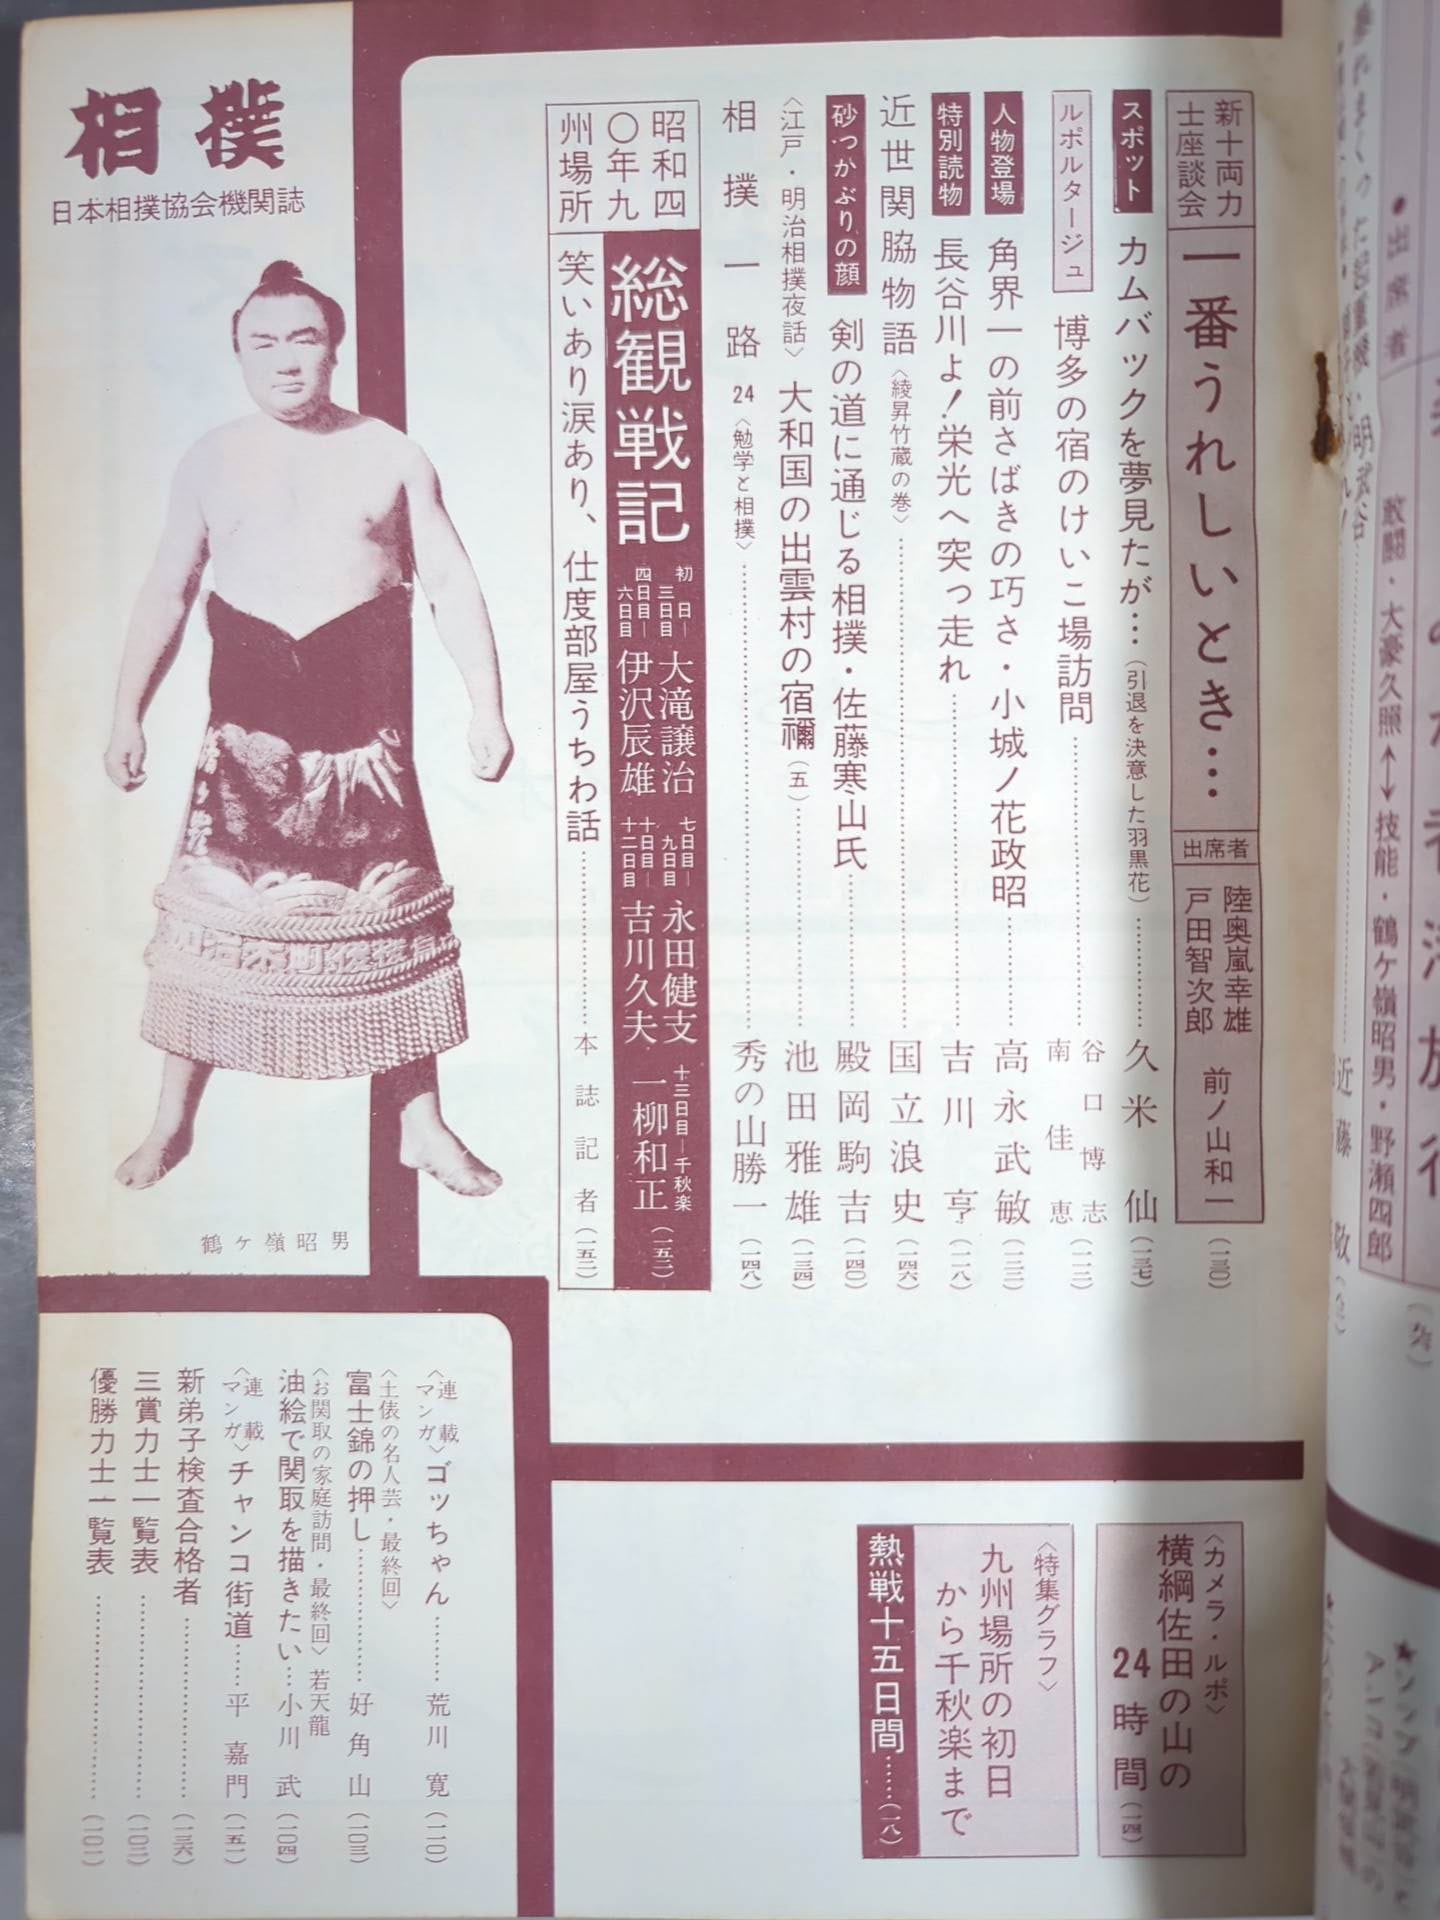 相撲
日本相撲協会機関誌
鶴ヶ嶺昭男
新十両力士座談会 一番うれしいとき… 出席者 陸奥嵐幸雄 戸田智次郎 前ノ山和一 (一三〇)
スポット カムバックを夢見たが…(引退を決意した羽黒花)………久米 仙(一三七)
ルポルタージュ 博多の宿のけいこ場訪問………谷口博志 南佳恵(一一二)
人物登場 角界一の前さばきの巧さ・小城ノ花政昭………高永武敏(一三二)
特別読物 長谷川よ!栄光へ突っ走れ………吉川 亨(一二八)
近世関脇物語〈綾昇竹蔵の巻〉………国立浪史(一四六)
砂っかぶりの顔 剣の道に通じる相撲・佐藤寒山氏………殿岡駒吉(一四〇)
〈江戸・明治相撲夜話〉大和国の出雲村の宿禰(五)………池田雅雄(一三四)
相撲一路 24〈勉学と相撲〉………秀の山勝一(一四八)
昭和四〇年九州場所
総観戦記
初日―三日目 大滝譲治
四日目―六日目 伊沢辰雄
七日目―九日目 永田健支
十日目―十二日目 吉川久夫
十三日目―千秋楽 一柳和正(一五二)
笑いあり涙あり、仕度部屋うちわ話………本誌記者(一五二)
〈カメラ・ルポ〉
横綱佐田の山の
24時間(一四)
〈特集グラフ〉
九州場所の初日
から千秋楽まで
熱戦十五日間……(一八)
〈連載マンガ〉ゴッちゃん………荒川 寛(一一〇)
〈土俵の名人芸・最終回〉
富士錦の押し………好角山(一〇三)
〈お関取の家庭訪問・最終回〉若天龍
油絵で関取を描きたい…小川 武(一〇四)
〈連載マンガ〉チャンコ街道……平 嘉門(一五一)
新弟子検査合格者………(一三六)
三賞力士一覧表………(一〇二)
優勝力士一覧表………(一〇一)